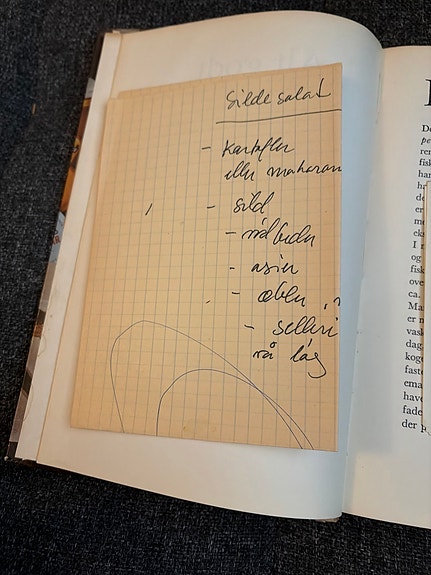 Silde salat
- Kartofler
eller makaron
- sild
- rødbeder
- asier
- æbler
- selleri
rå løg
De
pe
ren
fisk
har
han
de
er
me
eks
I r
og
fisk
ove
ca.
Mar
er n
vask
dag.
koge
faste
ema
have
fade
der p